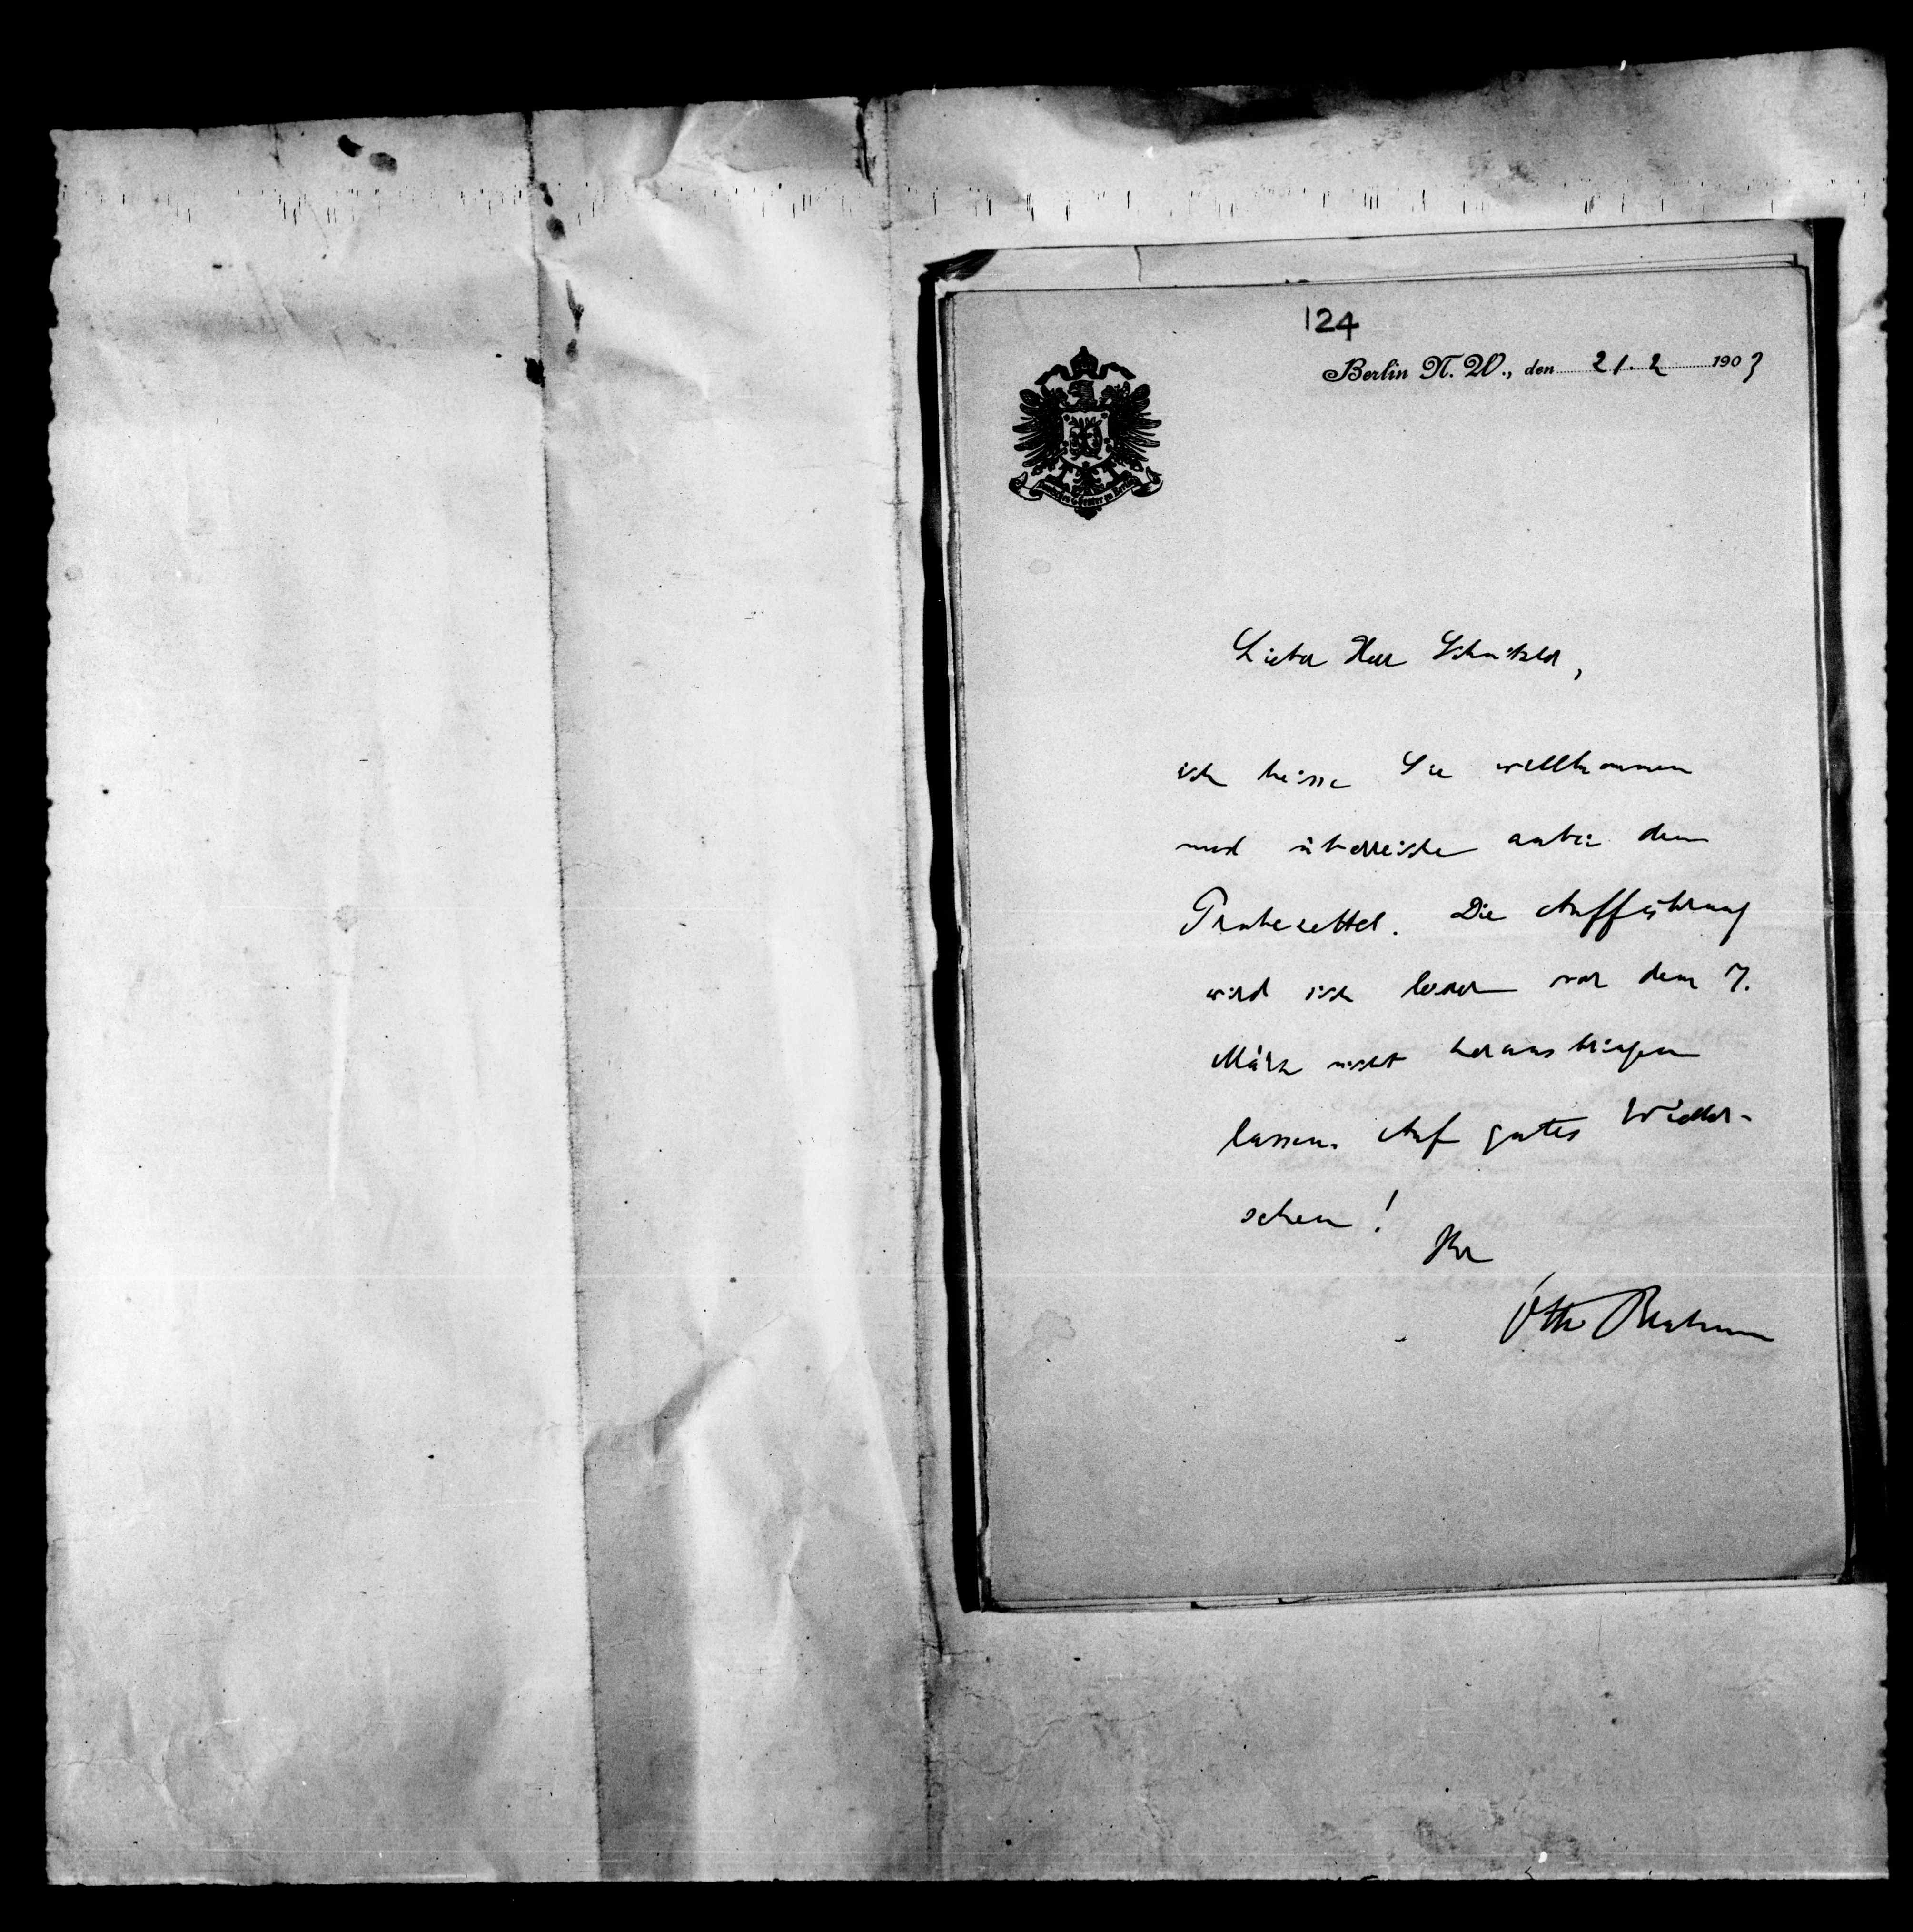 124
Berlin N. W., den 21. 2 1903
Deutsches Theater zu Berlin
Lieber Herr Schnitzler,
ich heisse Sie willkommen
und überreiche anbei den
Probezettel. Die Aufführung
wird sich leider vor dem 7.
März nicht herausbringen
lassen. Auf gutes Wieder-
sehen!
Ihr
Otto Brahm